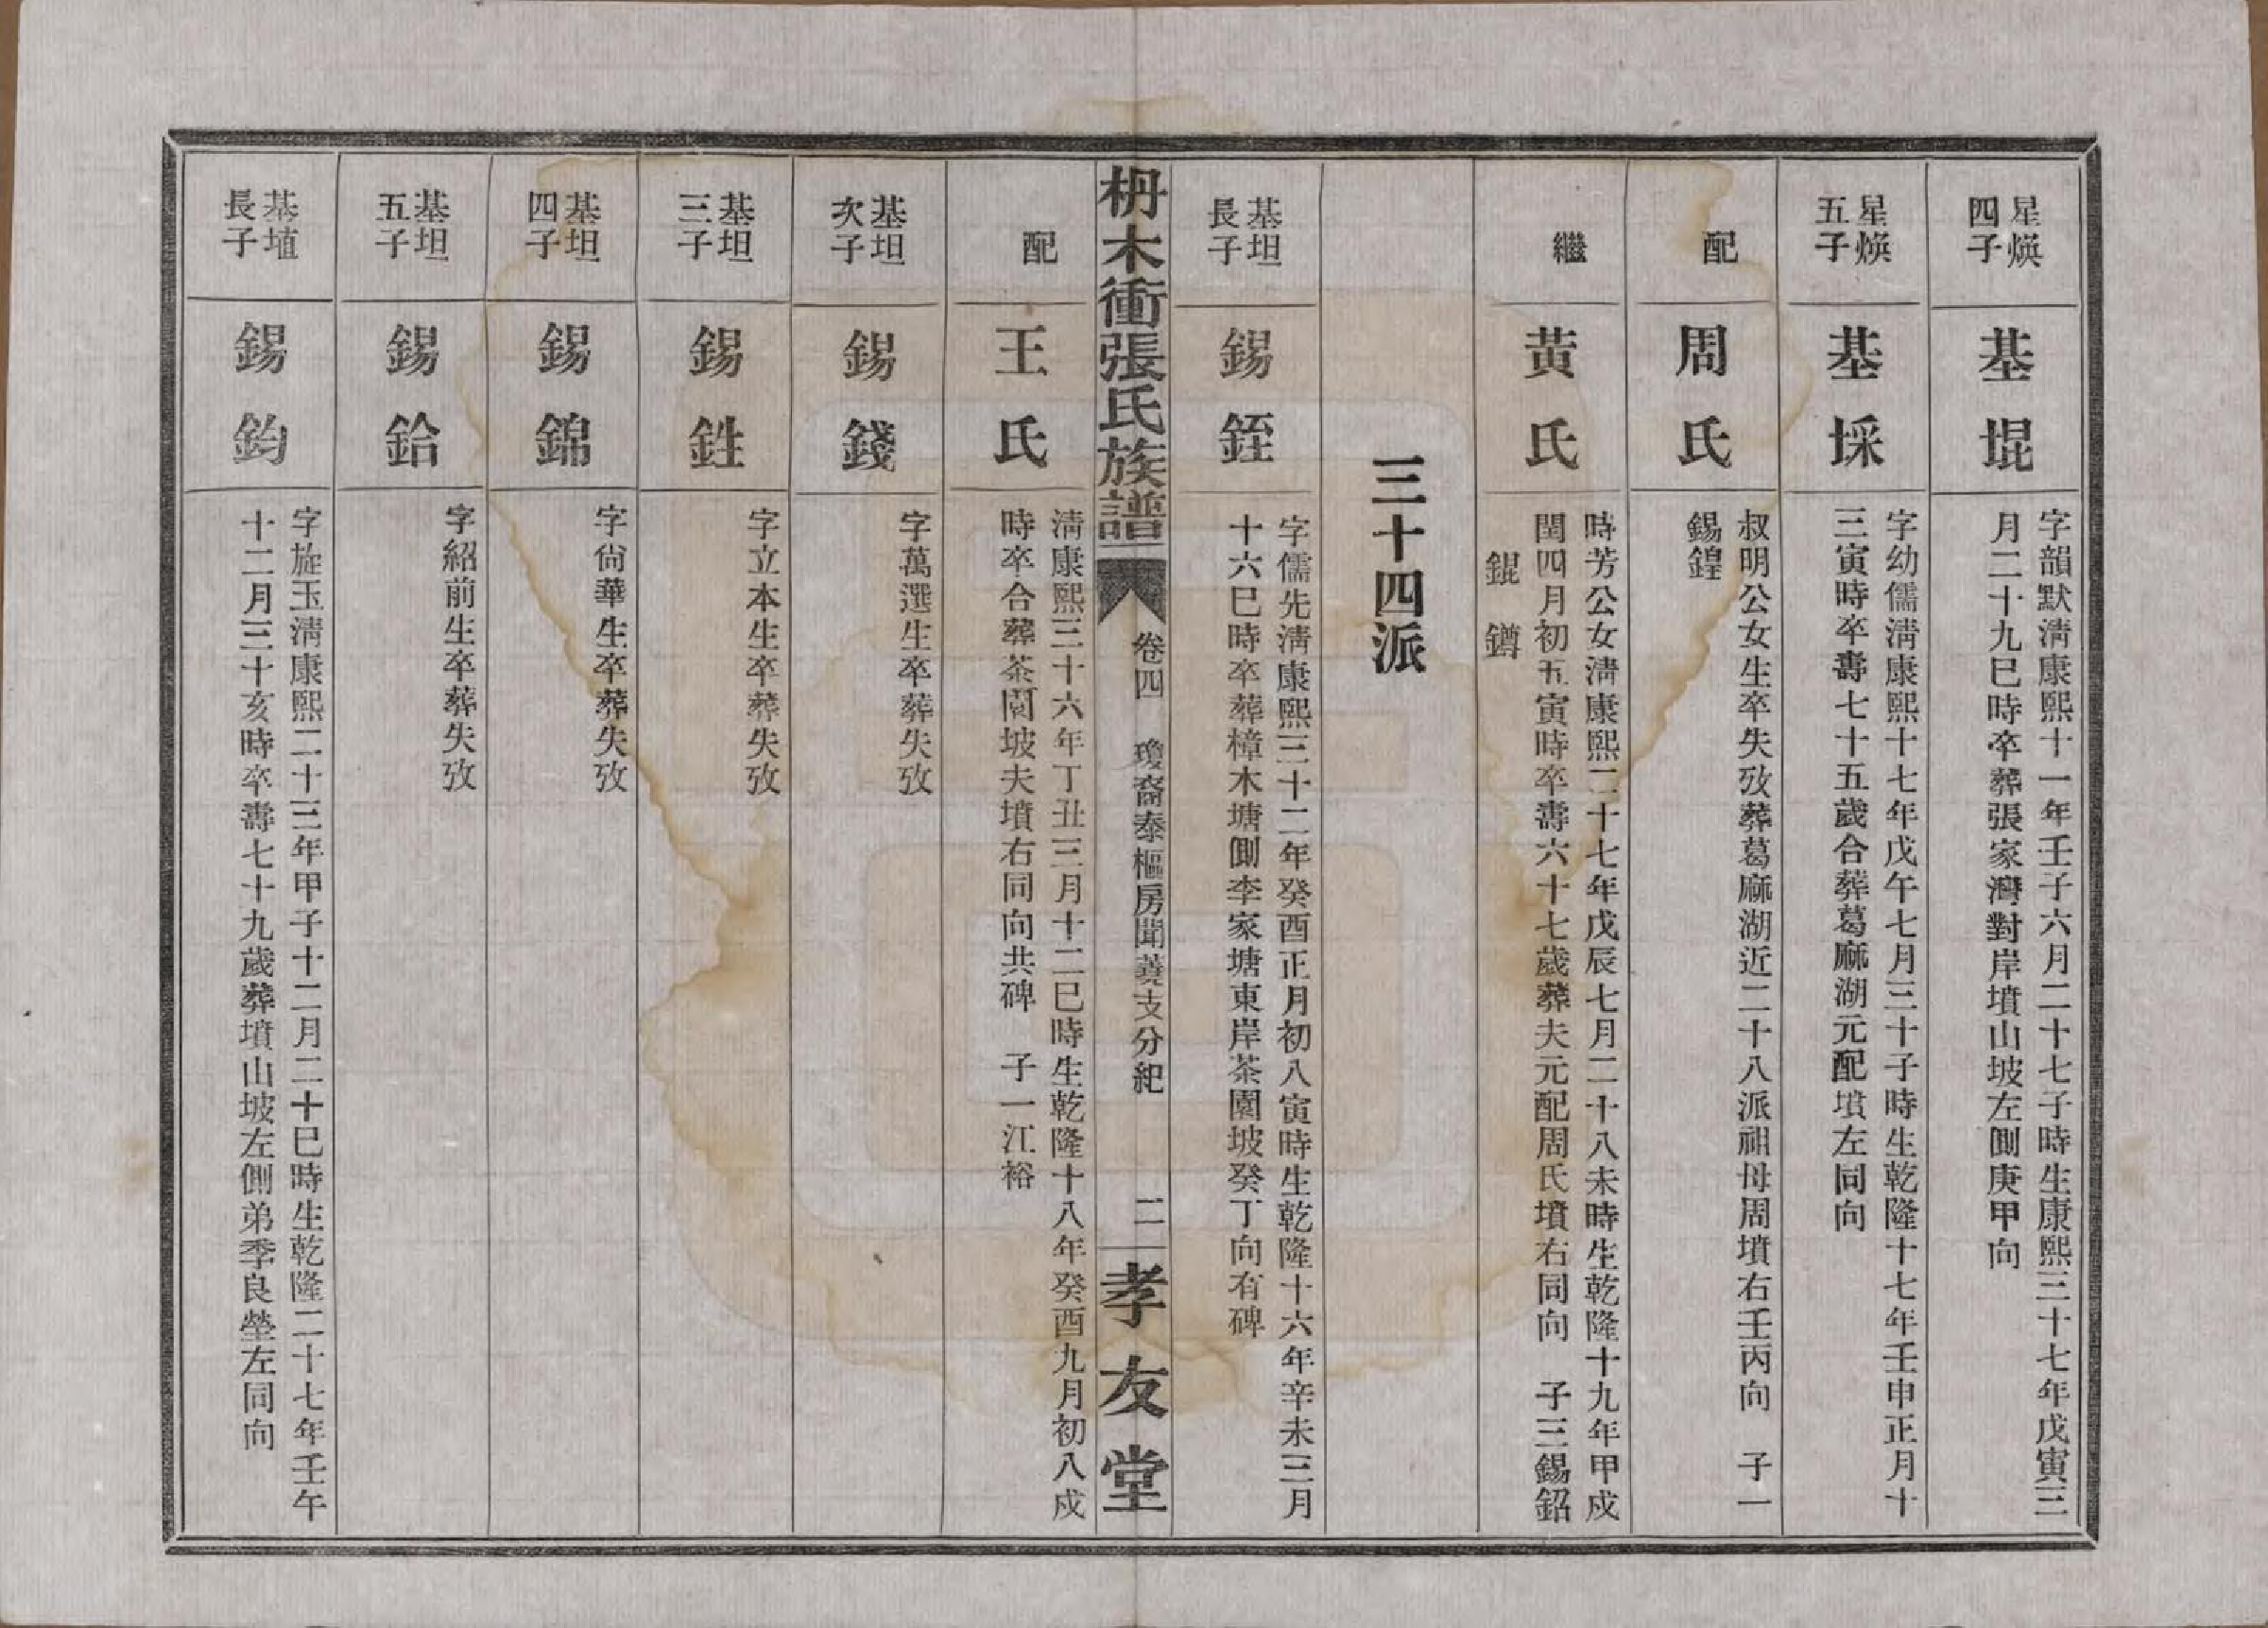 星煥
四子
基堒
字韻默淸康熙十一年壬子六月二十七子時生康熙三十七年戊寅三
月二十九巳時卒葬張家灣對岸墳山坡左側庚甲向
星煥
五子
基埰
字幼儒淸康熙十七年戊午七月三十子時生乾隆十七年壬申正月十
三寅時卒壽七十五歲合葬葛麻湖元配墳左同向
配
周氏
叔明公女生卒失攷葬葛麻湖近二十八派祖母周墳右壬丙向 子一
錫鍠
繼
黃氏
時芳公女淸康熙二十七年戊辰七月二十八未時生乾隆十九年甲戌
閏四月初五寅時卒壽六十七歲葬夫元配周氏墳右同向 子三錫鉊
錕 鐏
三十四派
基坦
長子
錫銍
字儒先淸康熙三十二年癸酉正月初八寅時生乾隆十六年辛未三月
十六巳時卒葬樟木塘側李家塘東岸茶園坡癸丁向有碑
枬木衝張氏族譜
卷四 瓊裔泰樞房聞義支分紀
二
孝友堂
配
王氏
淸康熙三十六年丁丑三月十二巳時生乾隆十八年癸酉九月初八戌
時卒合葬茶園坡夫墳右同向共碑 子一江裕
基坦
次子
錫錢
字萬選生卒葬失攷
基坦
三子
錫鉎
字立本生卒葬失攷
基坦
四子
錫錦
字尙華生卒葬失攷
基坦
五子
錫鉿
字紹前生卒葬失攷
基埴
長子
錫鈞
字旋玉淸康熙二十三年甲子十二月二十巳時生乾隆二十七年壬午
十二月三十亥時卒壽七十九歲葬墳山坡左側弟季良塋左同向